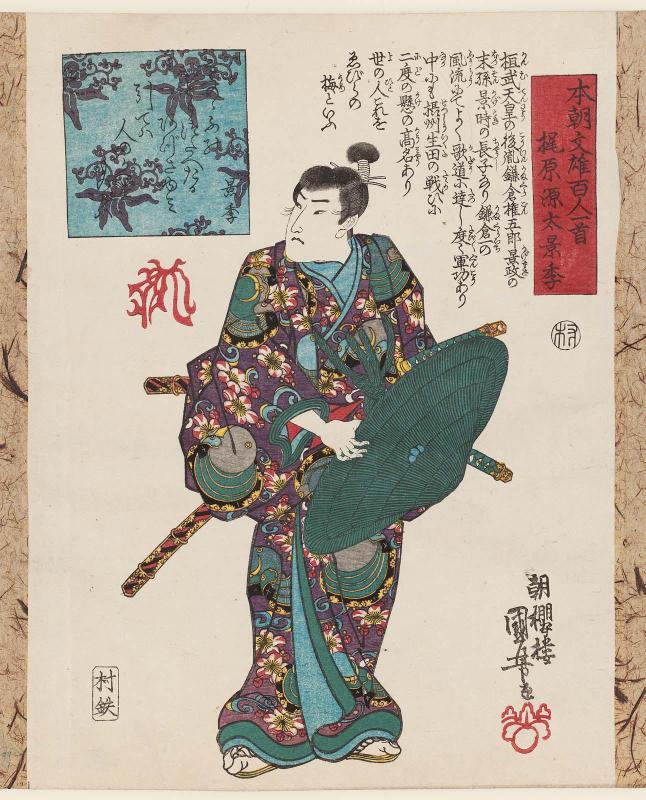 本朝文雄百人一首
梶原源太景季
桓武天皇の後胤鎌倉権五郎景政の
末孫景時の長子なり鎌倉一の
風流にてよく歌道に達し度々軍功あり
中にも摂州生田の戦ひに
二度の懸の高名あり
世の人これを
ゑびらの
梅といふ
景季
朝櫻楼
國芳画
村鉄
村